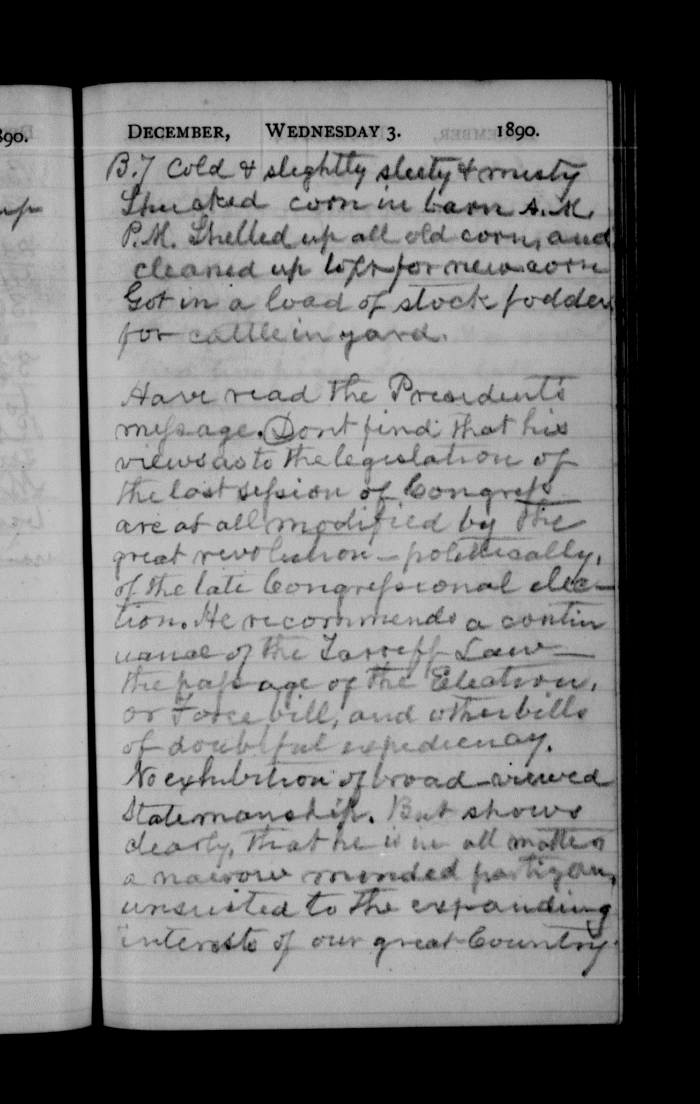 890.
DECEMBER, WEDNESDAY 3. 1890.
B.7 Cold & slightly sleety & misty
Shucked corn in barn A.M.
P.M. Shelled up all old corn, and
cleaned up loft for new corn
Got in a load of stock fodder
for cattle in yard.
Have read the President's
message. Dont find that his
views as to the legislation of
the last session of Congress
are at all modified by the
great revolution – politically,
of the late Congressional elec-
tion. He recommends a contin
uance of the Tarreff Law –
the passage of the Election,
or Force bill, and other bills
of doubtful expediency.
No exhibition of broad-viewed
Statemanship. But shows
clearly, that he is in all matters
a narrow minded partizan,
unsuited to the expanding
interests of our great Country